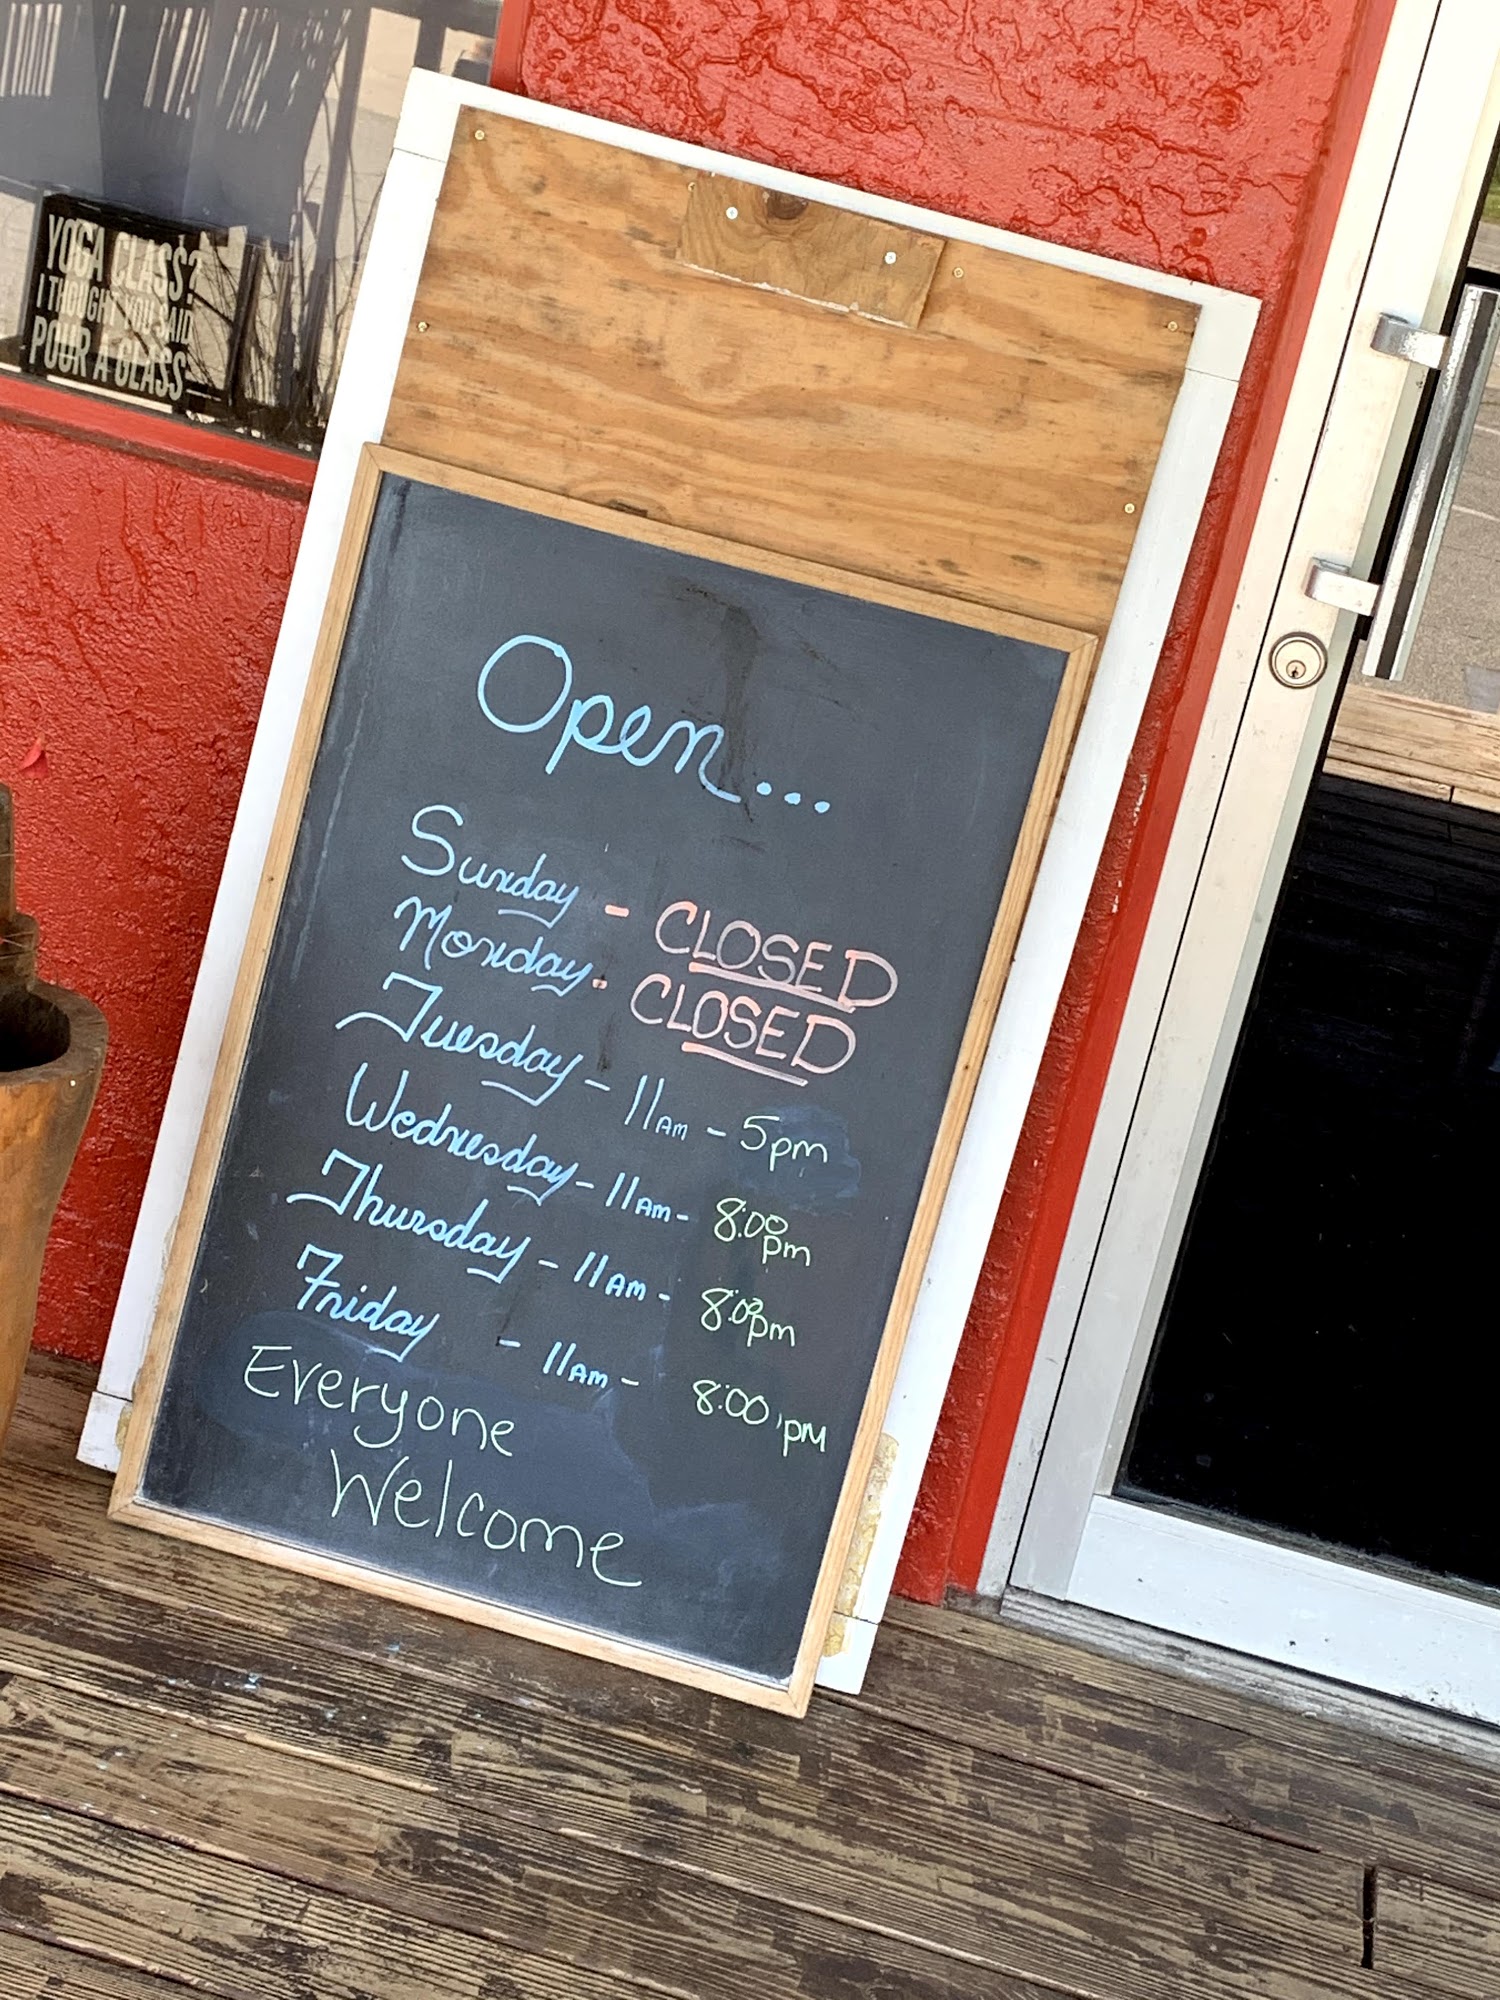 YOGA CLASS?
I THOUGHT YOU SAID
POUR A GLASS
Open...
Sunday - CLOSED
Monday - CLOSED
Tuesday - 11AM - 5pm
Wednesday - 11AM - 8:00pm
Thursday - 11AM - 8:00pm
Friday - 11AM - 8:00 pM
Everyone
Welcome